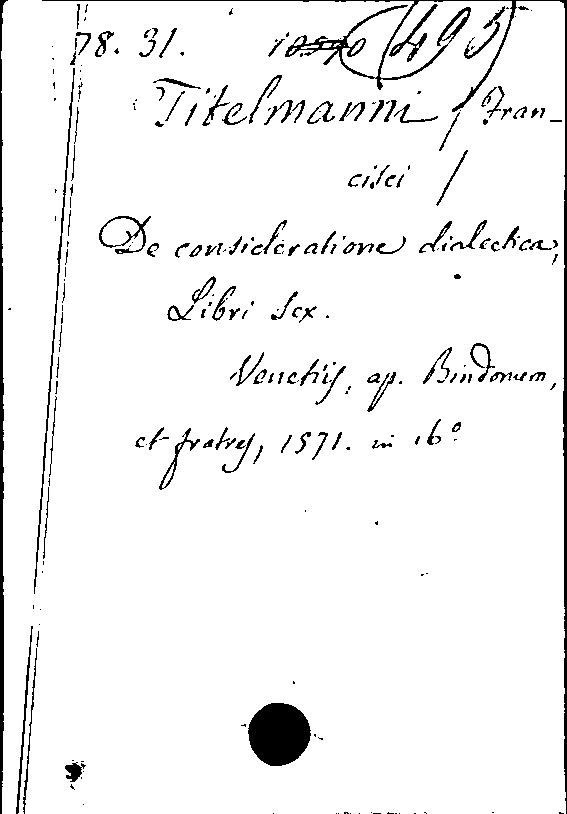 78. 31. 10590 495
Titelmanni / Fran-
cisci /
De consideratione dialectica,
Libri sex.
Venetiis, ap. Bindonum,
et fratres, 1571. in 16º